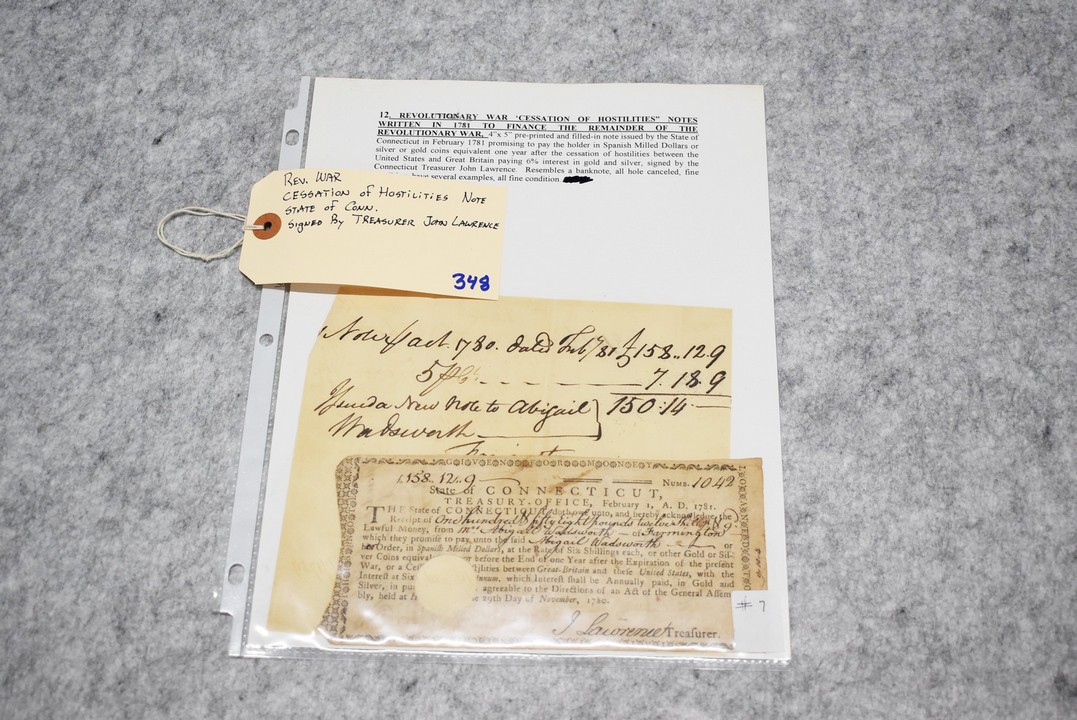 12. REVOLUTIONARY WAR 'CESSATION OF HOSTILITIES" NOTES
WRITTEN IN 1781 TO FINANCE THE REMAINDER OF THE
REVOLUTIONARY WAR, 4"x 5" pre-printed and filled-in note issued by the State of
Connecticut in February 1781 promising to pay the holder in Spanish Milled Dollars or
silver or gold coins equivalent one year after the cessation of hostilities between the
United States and Great Britain paying 6% interest in gold and silver, signed by the
Connecticut Treasurer John Lawrence. Resembles a banknote, all hole canceled, fine
have several examples, all fine condition.
REV. WAR
CESSATION of HOSTILITIES NOTE
STATE of CONN.
SIGNED By TREASURER JOHN LAWRENCE
348
Note act. 1780. dated Feb 81 £158..12.9
5 7.18.9
New Note to Abigail } 150:14
Wadsworth
GIVEN FOR MONEY
158..12..9 NUMB. 1042
State of CONNECTICUT,
TREASURY-OFFICE, February 1, A. D. 1781.
THE State of CONNECTICUT doth owe unto, and hereby acknowledge the
Receipt of One hundred & fifty eight pounds twelve
Lawful Money, from Mrs Abigail Wadsworth of Farmington
which they promise to pay unto the said Abigail Wadsworth or
her Order, in Spanish Milled Dollars, at the Rate of Six Shillings each, or other Gold or Sil-
ver Coins or before the End of one Year after the Expiration of the present
War, or a between Great-Britain and these United States, with the
Interest at Six which Interest shall be Annually paid, in Gold and
Silver, agreeable to the Directions of an Act of the General Assem
bly, held at 29th Day of November, 1780.
J Lawrence Treasurer.
# 7